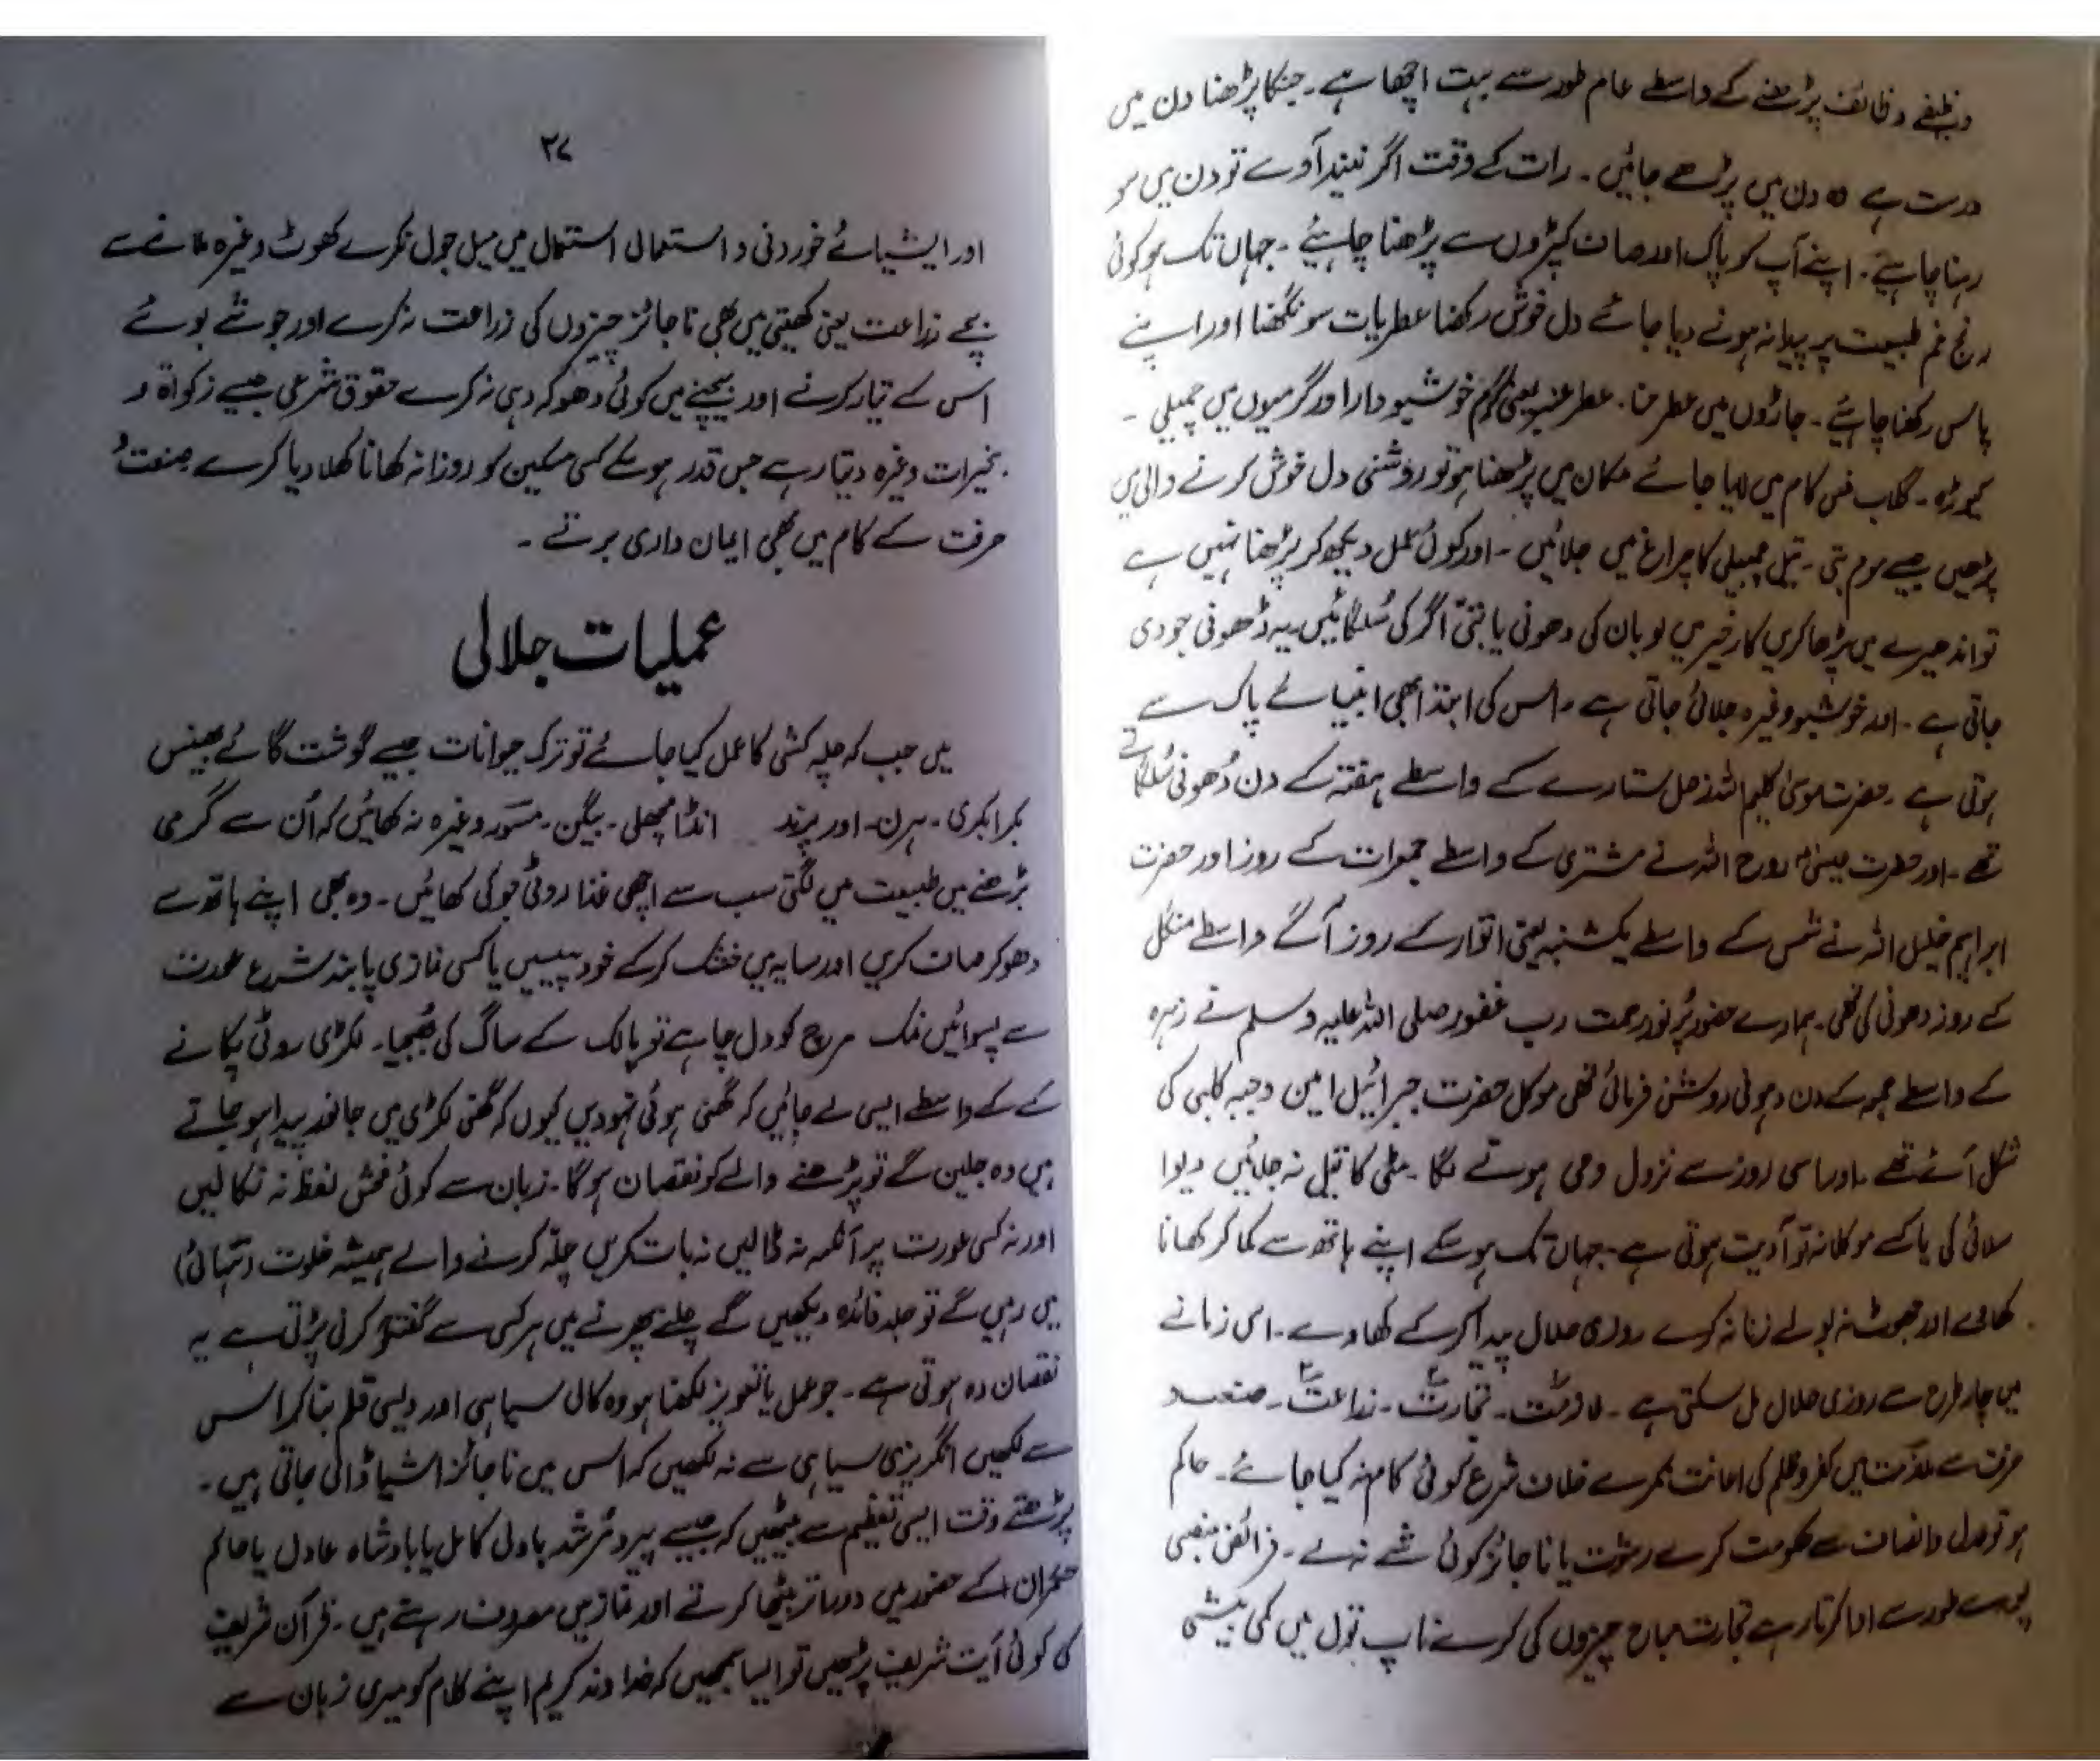 وظیفے وظائف پڑھنے کے واسطے عام طور سے بہت اچھا ہے۔ جنکا پڑھنا دن میں
درست ہے وہ دن میں پڑھے جائیں۔ رات کے وقت اگر نیند آوے تو دن میں سو
رہنا چاہیے۔ اپنے آپ کو پاک اور صاف کپڑوں سے پڑھنا چاہیئے۔ جہاں تک ہو کوئی
رنج غم طبیعت پر پیدا نہ ہونے دیا جائے دل خوش رکھنا عطریات سونگھنا اور اپنے
پاس رکھنا چاہیئے۔ جاڑوں میں عطر حنا۔ عطر عنبر یعنی گرم خوشبو دار اور گرمیوں میں چمبیلی۔
کیوڑہ۔ گلاب خس کام میں لایا جائے مکان میں پڑھنا ہو تو روشنی دل خوش کرنے والی میں
پڑھیں جیسے موم بتی۔ تیل چمبیلی کا چراغ میں جلائیں۔ اور کوئی عمل دیکھ کر پڑھنا نہیں ہے
تو اندھیرے میں پڑھا کریں کار خیر میں لوبان کی دھونی یا بتی اگر کی سُلگائیں یہ دُھونی جو دی
جاتی ہے۔ اور خوشبو وغیرہ جلائی جاتی ہے۔ اس کی ابتدا بھی انبیائے پاک سے
ہوتی ہے۔ حضرت موسیٰ کلیم اللہ زحل ستارے کے واسطے ہفتہ کے دن دُھونی سُلگاتے
تھے۔ اور حضرت عیسیٰ روح اللہ نے مشتری کے واسطے جمعرات کے روز اور حضرت
ابراہیم خلیل اللہ نے شمس کے واسطے یکشنبہ یعنی اتوار کے روز آگے واسطے منگل
کے روز دھونی کی تھی۔ ہمارے حضور پُر نور رحمت رب غفور صلی اللہ علیہ وسلم نے زہرہ
کے واسطے جمعہ کے دن دہونی روشن فرمائی تھی موکل حضرت جبرائیل امین دحیہ کلبی کی
شکل آئے تھے۔ اور اسی روز سے نزول وحی ہونے لگا۔ مٹی کا تیل نہ جلائیں دیوا
سلائی کی یا کے موکلانہ تو آدیت ہوتی ہے۔ جہاں تک ہو سکے اپنے ہاتھ سے کما کر کھانا
کھائے اور جھوٹ نہ بولے زنا نہ کرے روزی حلال پیدا کرکے کھاوے۔ اس زمانے
میں چار طرح سے روزی حلال مل سکتی ہے۔ ملازمت۔ تجارت۔ زراعت۔ صنعت و
حرفت سے ملازمت میں کفر و ظلم کی اعانت نکرے خلاف شرع کوئی کام نہ کیا جائے۔ حاکم
ہو تو عدل و انصاف سے حکومت کرے رشوت یا ناجائز کوئی شے نہ لے۔ فرائض منصبی
پورے طور سے ادا کرتا رہے تجارت مباح چیزوں کی کرے ناپ تول میں کمی بیشی
۲۷
اور ایشیائے خوردنی و استعمالی استعمال میں میل جول نکرے کھوٹ وغیرہ ملانے سے
بچے زراعت یعنی کھیتی میں بھی ناجائز چیزوں کی زراعت نہ کرے اور جوتنے بونے
اس کے تیار کرنے اور بیچنے میں کوئی دھوکہ دہی نہ کرے حقوق شرعی جیسے زکواۃ و
خیرات وغیرہ دیتا رہے جس قدر ہو سکے کسی مسکین کو روزانہ کھانا کھلا دیا کرے صنعت و
حرفت کے کام میں بھی ایمان داری برتے۔
عملیات جلالی
میں جب کہ چلہ کشی کا عمل کیا جائے تو ترک حیوانات جیسے گوشت گائے بھینس
بکرا بکری۔ ہرن۔ اور پرند انڈا مچھلی۔ بیگن۔ مسور وغیرہ نہ کھائیں کہ اُن سے گرمی
بڑھنے میں طبیعت میں لگتی سب سے اچھی غذا روٹی جو کی کھائیں۔ وہ بھی اپنے ہاتھ سے
دھو کر صاف کریں اور سایہ میں خشک کرکے خود پیسیں یا کسی نمازی پابند شرع عورت
سے پسوائیں نمک مرچ کو دل چاہے تو پالک کے ساگ کی بھجیا۔ لکڑی روٹی پکانے
کے کے واسطے ایسی لے جائیں کہ گھنی ہوئی نہودیں کیوں کہ گھنی لکڑی میں جانور پیدا ہو جاتے
ہیں وہ جلیں گے تو پڑھنے والے کو نقصان ہوگا۔ زبان سے کوئی فحش لفظ نہ نکالیں
اور نہ کسی عورت پر آنکھ نہ ڈالیں نہ بات کریں چلّہ کرنے والے ہمیشہ خلوت (تنہائی)
میں رہیں گے تو جلد فائدہ دیکھیں گے چلنے پھرنے میں ہر کسی سے گفتگو کرنی پڑتی ہے یہ
نقصان دہ ہوتی ہے۔ جو عمل یا تعویز لکھنا ہو وہ کالی سیاہی اور دیسی قلم بنا کر اس
سے لکھیں انگریزی سیاہی سے نہ لکھیں کہ اس میں ناجائز اشیا ڈالی جاتی ہیں۔
پڑھتے وقت ایسی تعظیم سے بیٹھیں کہ جیسے پیر و مُرشد یا ولی کامل یا بادشاہ عادل یا حاکم
حکمران کے حضور میں دوزانو بیٹھا کرتے اور نماز میں مصروف رہتے ہیں۔ قرآن شریف
کی کوئی آیت شریف پڑھیں تو ایسا سمجھیں کہ خداوند کریم اپنے کلام کو میری زبان سے